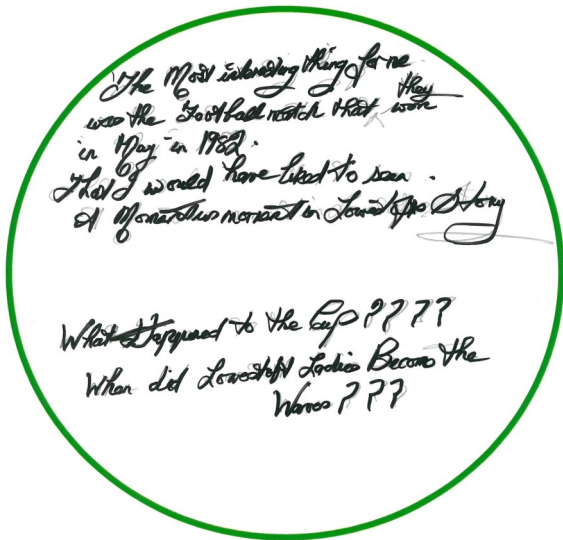 The Most interesting thing for me
was the Football match that they won
in May in 1982.
That I would have liked to seen.
A Momentus moment in Lowestofts Story
What Happened to the Cup ????
When did Lowestoft Ladies Become the
Waves ???